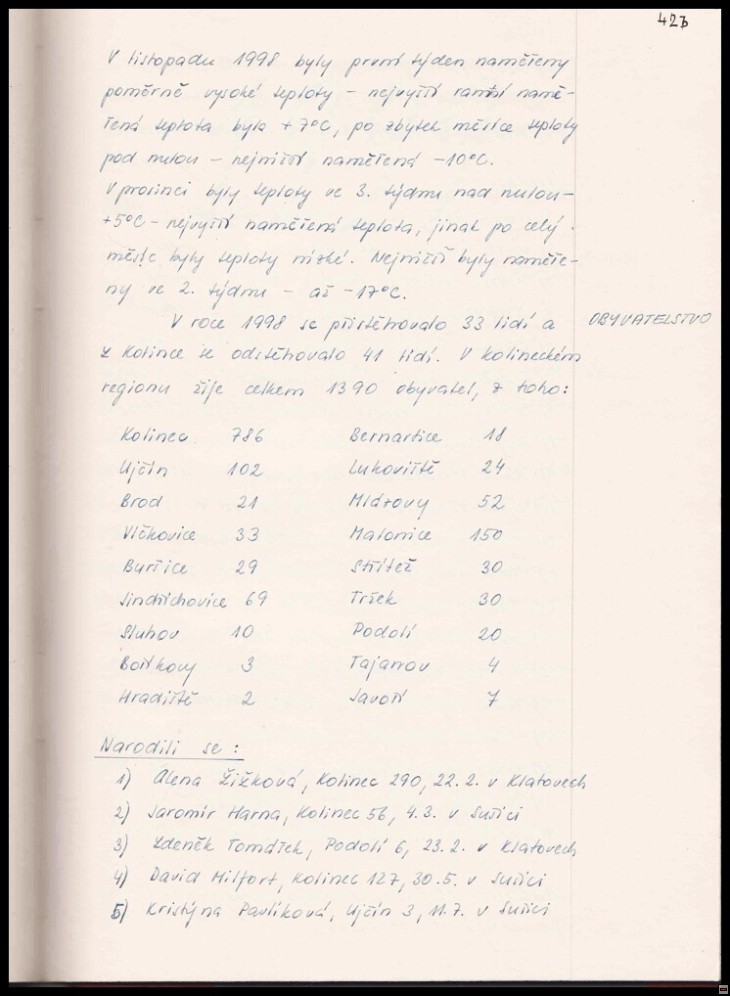 427
V listopadu 1998 byly první týden naměřeny
poměrně vysoké teploty – nejvyšší ranní namě-
řená teplota byla +7°C, po zbytek měsíce teploty
pod nulou – nejnižší naměřená –10°C.
V prosinci byly teploty ve 3. týdnu nad nulou –
+5°C – nejvyšší naměřená teplota, jinak po celý
měsíc byly teploty nízké. Nejnižší byly naměře-
ny ve 2. týdnu – až –17°C.
V roce 1998 se přistěhovalo 33 lidí a OBYVATELSTVO
z Kolince se odstěhovalo 41 lidí. V kolineckém
regionu žije celkem 1390 obyvatel, z toho:
Kolinec 786 Bernartice 18
Ujčín 102 Lukoviště 24
Brod 21 Mlázovy 52
Vlčkovice 33 Malonice 150
Buršice 29 Střítež 30
Jindřichovice 69 Tržek 30
Sluhov 10 Podolí 20
Boříkovy 3 Tajanov 4
Hradiště 2 Javoří 7
Narodili se :
1) Alena Žižková, Kolinec 290, 22.2. v Klatovech
2) Jaromír Harna, Kolinec 56, 4.3. v Sušici
3) Zdeněk Tomášek, Podolí 6, 23.2. v Klatovech
4) David Milfort, Kolinec 127, 30.5. v Sušici
5) Kristýna Pavlíková, Ujčín 3, 11.7. v Sušici